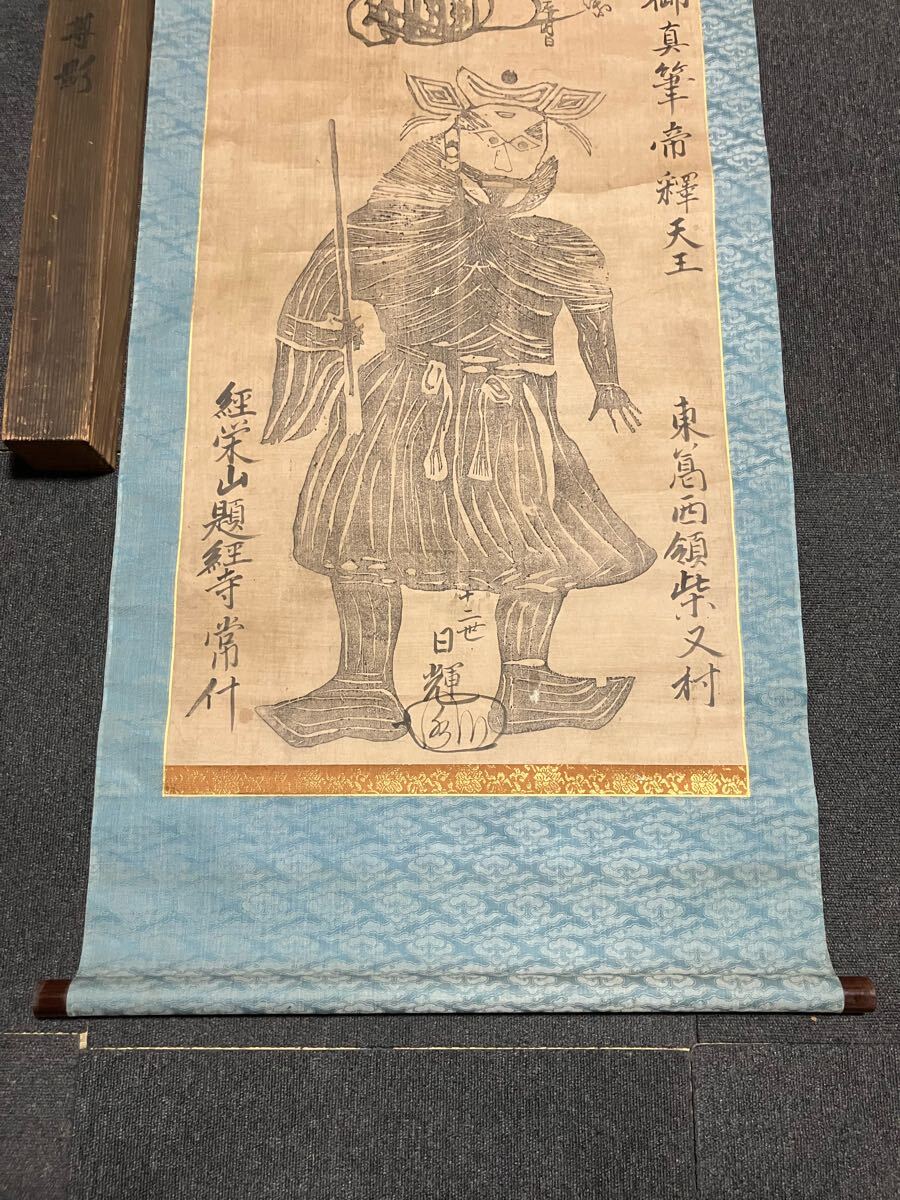 御真筆帝釋天王
東葛西領柴又村
十二世
日輝
經栄山題經寺常什
尊影